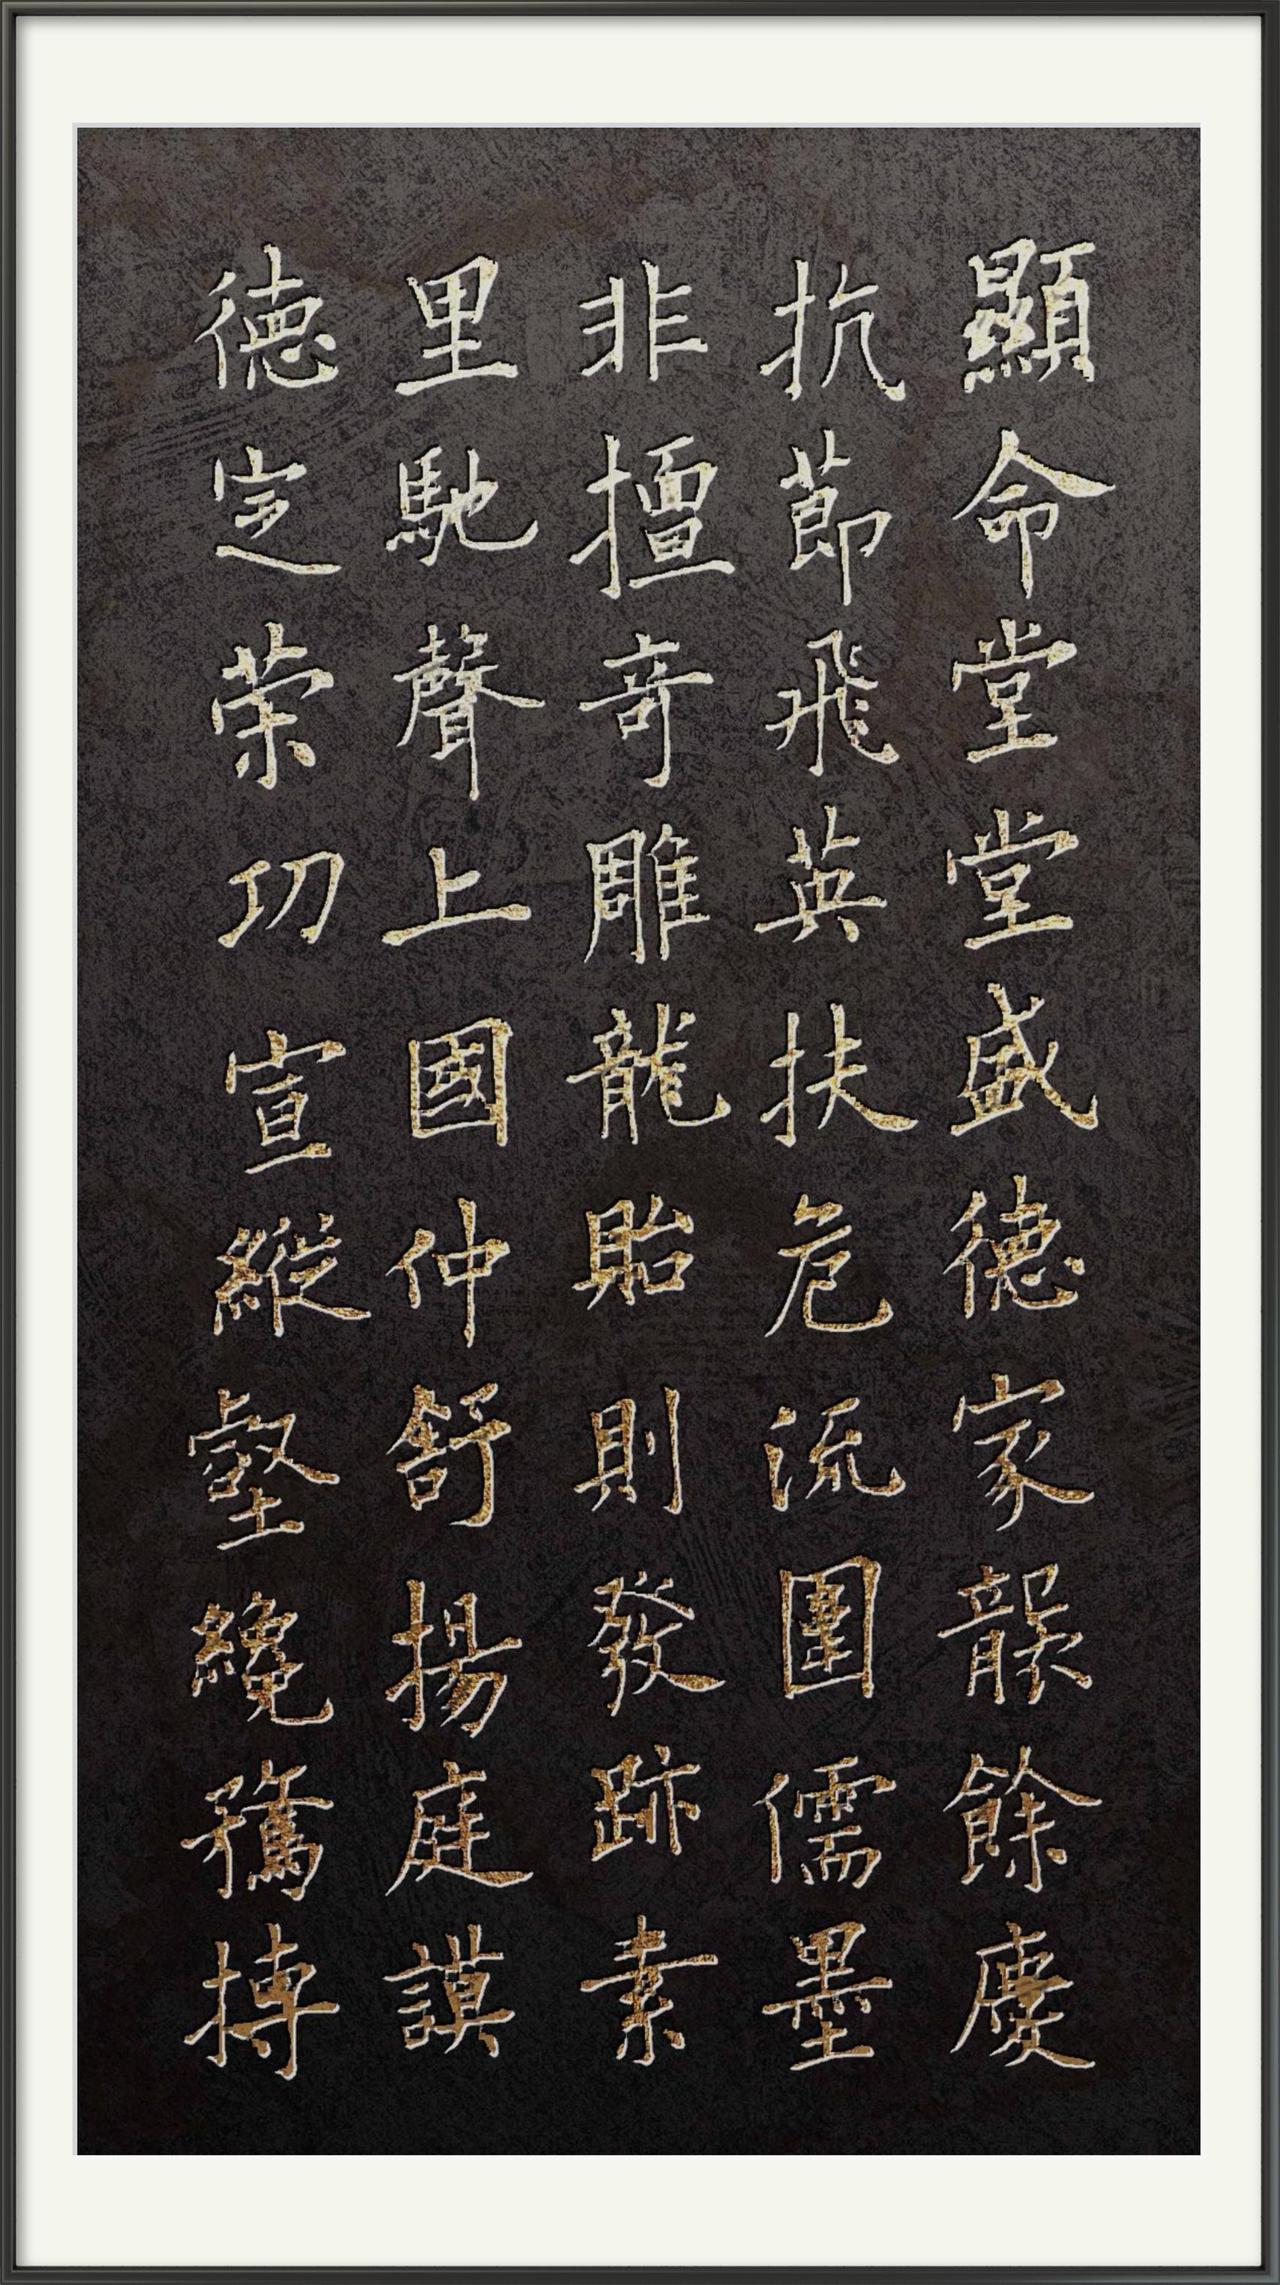 顯命堂堂盛德家襲餘慶
抗節飛英扶危流圍儒墨
非擅奇雕龍貽則發跡素
里馳聲上國仲舒揚庭謨
德定荣功宣縱壑纔騖搏